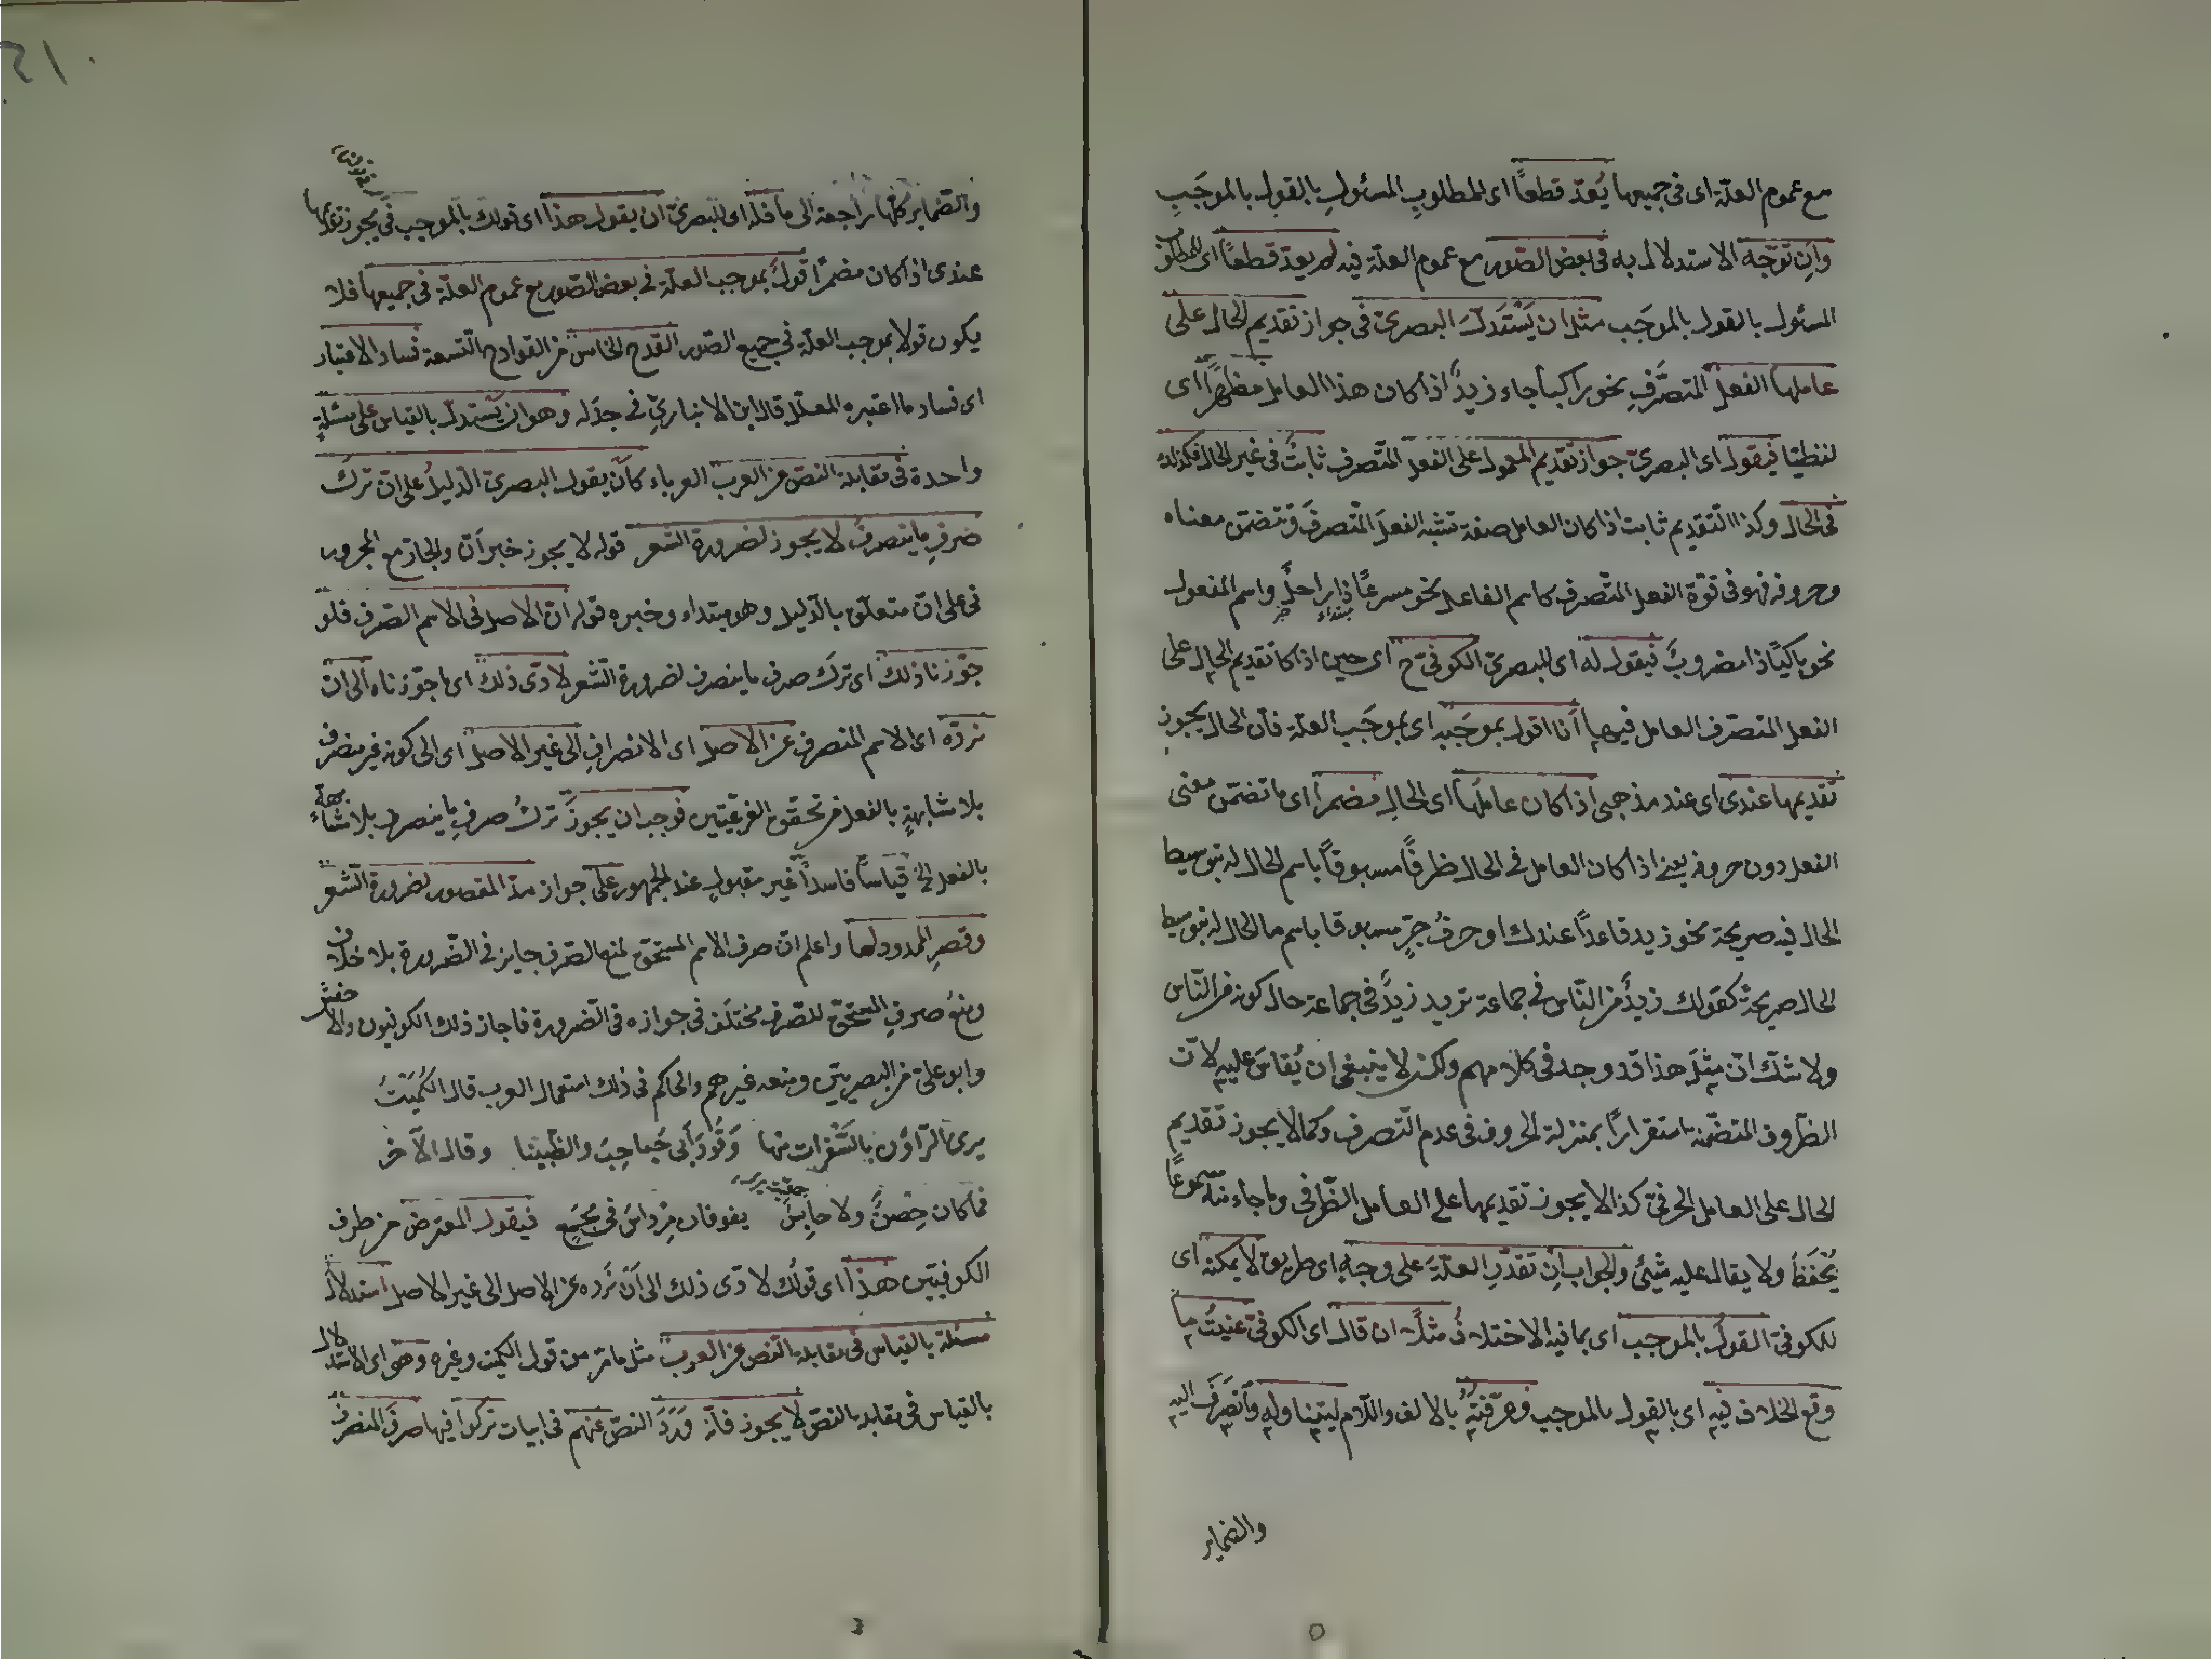 مع عموم العلّة اى فى جميعها يُعدّ قطعاً اى للمطلوبِ المسئولِ بالقول بالموجَبِ
وان توجّه الاستدلال به فى بعض الصّور مع عموم العلّة فيه لم يعدّ قطعاً اى للمطلوب
المسئول بالقول بالموجَب مثل ان يَسْتَدلّ البصرىّ فى جواز تقديم الحال على
عاملها الفعل المتصَرّفِ نحو راكباً جاء زيدٌ اذا كان هذا العامل مظهراً اى
لفظيّا فيقول اى البصرىّ جواز تقديم المعمول على الفعل المتّصرف ثابتٌ فى غير الحال فكذلك
فى الحال وكذا التّقديم ثابت اذا كان العامل صفة تشبه الفعلَ المتّصرفَ وتتضمّن معناه
وحروفه فهو فى قوّة الفعل المتّصرف كاسم الفاعل نحو مسرعًا ذا راحلٌ واسم المفعول
مبتداء خبر
نحو باكيًا ذا مضروبٌ فيقول له اى للبصرىّ الكوفىّ ح اى حين اذ كان تقديم الحال على
الفعل المتصّرف العامل فيها أنا اقول بموجَبِه اى بموجَب العلّة فانّ الحال يجوز
تقديمها عندى اى عند مذهبى اذا كان عاملُها اى الحالِ مضمراً اى ما تضمّن معنى
الفعل دون حروفه يعنى اذا كان العامل فى الحال ظرفًا مسبوقاً باسم الحال له بتوسيط
الحال فيه صريحة نحو زيد قاعداً عندك او حرفُ جرٍّ مسبوقا باسم ما الحال له بتوسيط
الحال صريحةً كقولك زيدٌ من النّاس فى جماعة تريد زيدٌ فى جماعة حال كونه من النّاس
ولا شكّ انّ مِثلَ هذا قد وجد فى كلامهم ولكن لا ينبغى ان يُقاسَ عليه لانّ
الظّروف المتضمّنة استقرارًا بمنزلة الحروف فى عدم التّصرف وكما لا يجوز تقديم
الحال على العامل الحرفىّ كذا لا يجوز تقديمها على العامل الظّرفى وما جاء منه مسموعًا
يُحْفَظُ ولا يقال عليه شيئى والجواب اِن تقدّرِ العلّةَ على وجهٍ اى طريق لا يمكنه اى
للكوفىّ القولُ بالموجب اى بما فيه الاختلافُ مثلاً ان قال اى الكوفىّ عنيتُ ما
وقع الخلاف فيه اى بالقول بالموجب وعرّفتُه بالالف واللّام ليتناوله وانصَرَفَ اليه
والضماير
والضّماير كلّها راجعة الى ما فله اى للبصرىّ ان يقول هذا اى قولك بالموجب فى يجوز تقديمها
عندى اذا كان مضمرًا قولٌ بموجب العلّة فى بعض الصّور مع عموم العلّة فى جميعها فلا
يكون قولا بموجب العلّة فى جميع الصّور القدح الخامس من القوادح التّسعة فساد الاعتبار
اى فساد ما اعتبره المعلّل قال ابن الانبارىّ فى جدله وهو ان يَستدلّ بالقياس على مسئلةٍ
واحدة فى مقابلة النّصّ عن العرب العرباء كأن يقول البصرىّ الدّليلُ على انّ تركَ
صَرفِ ما ينصرفُ لا يجوز لضرورة الشّعر قوله لا يجوز خبر اَنّ والجارّ مع المجرور
فى على انّ متعلّق بالدّليل وهو مبتداء وخبره قوله انّ الاصل فى الاسم الصّرف فلو
جوّزنا ذلك اى تركَ صرف ما ينصرف لضرورة الشّعر لادّى ذلك اى ما جوّزناه الى ان
نردّه اى الاسم المنصرف عن الاصل اى الانصرافِ الى غير الاصل اى الى كونه غير منصرف
بلا مشابهةٍ بالفعل من تحقّق الفرعيّتين فوجب ان يجوزَ تركُ صرفِ ما ينصرف بلا مشابهةٍ
بالفعل الخ قياساً فاسداً غير مقبولٍ عند الجمهور على جواز مدّ المقصور لضرورة الشّعر
وقصرِ الممدود لها واعلم انّ صرف الاسم المستحقّ لمنع الصّرف جايز فى الضّرورة بلا خلاف
ومنعُ صرفِ المستحقّ للصّرف مختلَف فى جوازه فى الضّرورة فاجاز ذلك الكوفيون والاخفش
وابو علىّ من البصريّين ومنعه غيرهم والحاكم فى ذلك استعمال العرب قال الكُمَيْتُ
يرى الرّاؤن بالشَّفَرات منها وَقُودَ أبى حُباحِبَ والظُّبينا وقال الآخر
فما كان حِصنٌ ولا حابِسٌ يفوقان مِرداسَ فى مَجْمَعٍ فيقول المعترض من طرف
الكوفيّين هذا اى قولُك لادّى ذلك الى اَنْ نَرده عن الاصل الى غير الاصل استدلالُ
مسئلة بالقياس فى مقابلة النّصّ عن العرب مثل ما مرّ من قول الكميت وغيره وهو اى الاستدلال
بالقياس فى مقابلة النّصّ لا يجوز فانّه وَرَدَ النّصّ عنهم فى ابيات تركوا فيها صرفَ المنصرف